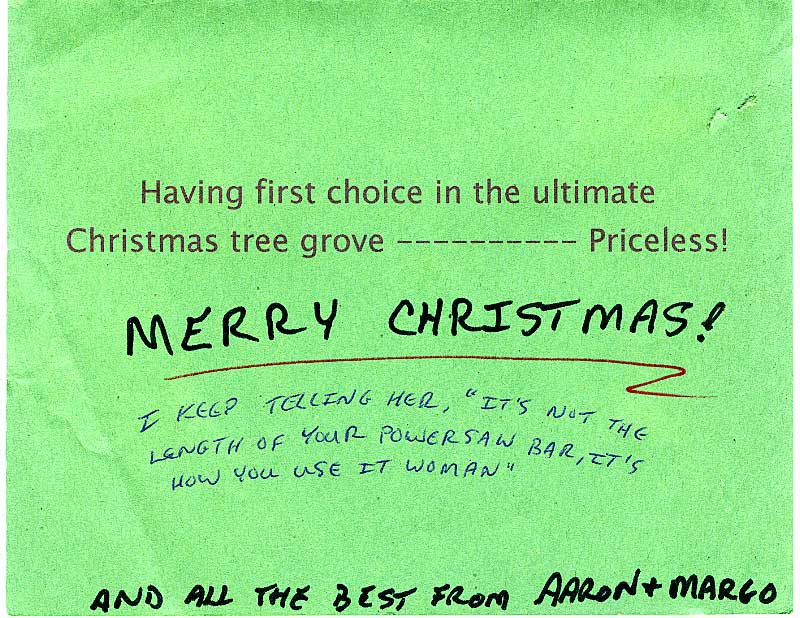 Having first choice in the ultimate
Christmas tree grove ---------- Priceless!
MERRY CHRISTMAS!
I KEEP TELLING HER, "IT'S NOT THE
LENGTH OF YOUR POWERSAW BAR, IT'S
HOW YOU USE IT WOMAN"
AND ALL THE BEST FROM AARON + MARGO